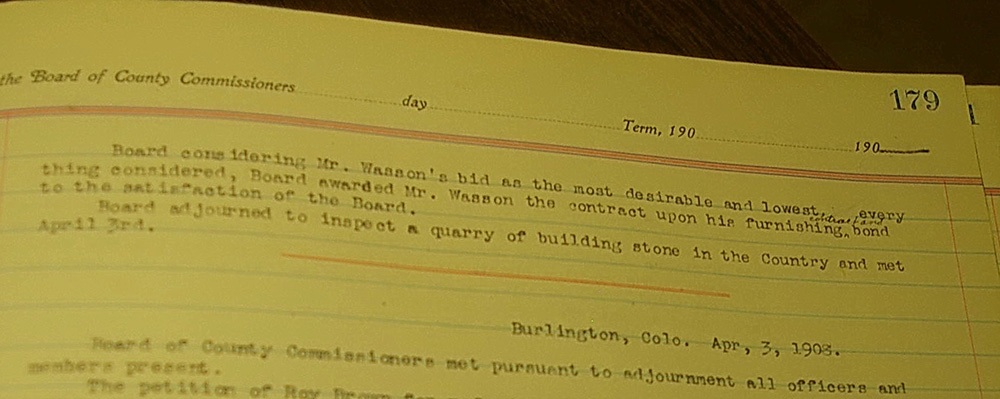 the Board of County Commissioners day Term, 190 190 179
Board considering Mr. Wasson's bid as the most desirable and lowest, every
thing considered, Board awarded Mr. Wasson the contract upon his furnishing bond
to the satisfaction of the Board.
Board adjourned to inspect a quarry of building stone in the Country and met
April 3rd.
Burlington, Colo. Apr, 3, 1903.
Board of County Commissioners met pursuant to adjournment all officers and
members present.
The petition of Roy Brown